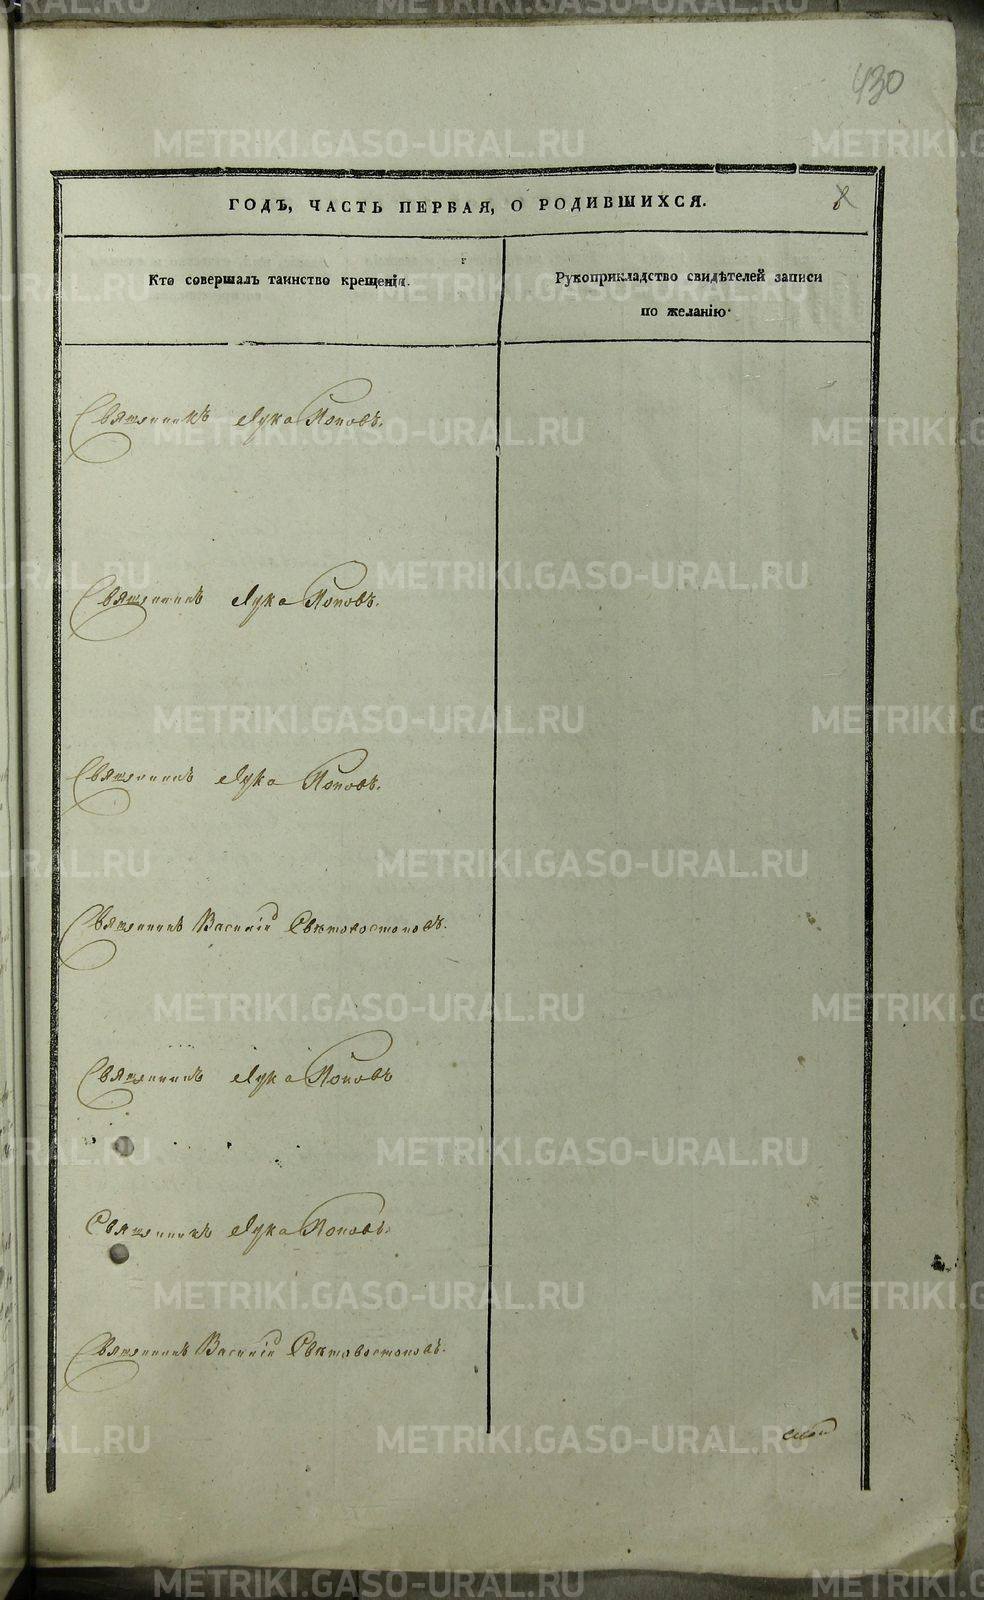 430
ГОДЪ, ЧАСТЬ ПЕРВАЯ, О РОДИВШИХСЯ.
Кто совершалъ таинство крещенія.
Рукоприкладство свидѣтелей записи
по желанію.
Священникъ Лука Поповъ.
Священникъ Лука Поповъ.
Священникъ Лука Поповъ.
Священникъ Василій Свѣтовостоковъ.
Священникъ Лука Поповъ
Священникъ Лука Поповъ.
Священникъ Василій Свѣтовостоковъ.
METRIKI.GASO-URAL.RU